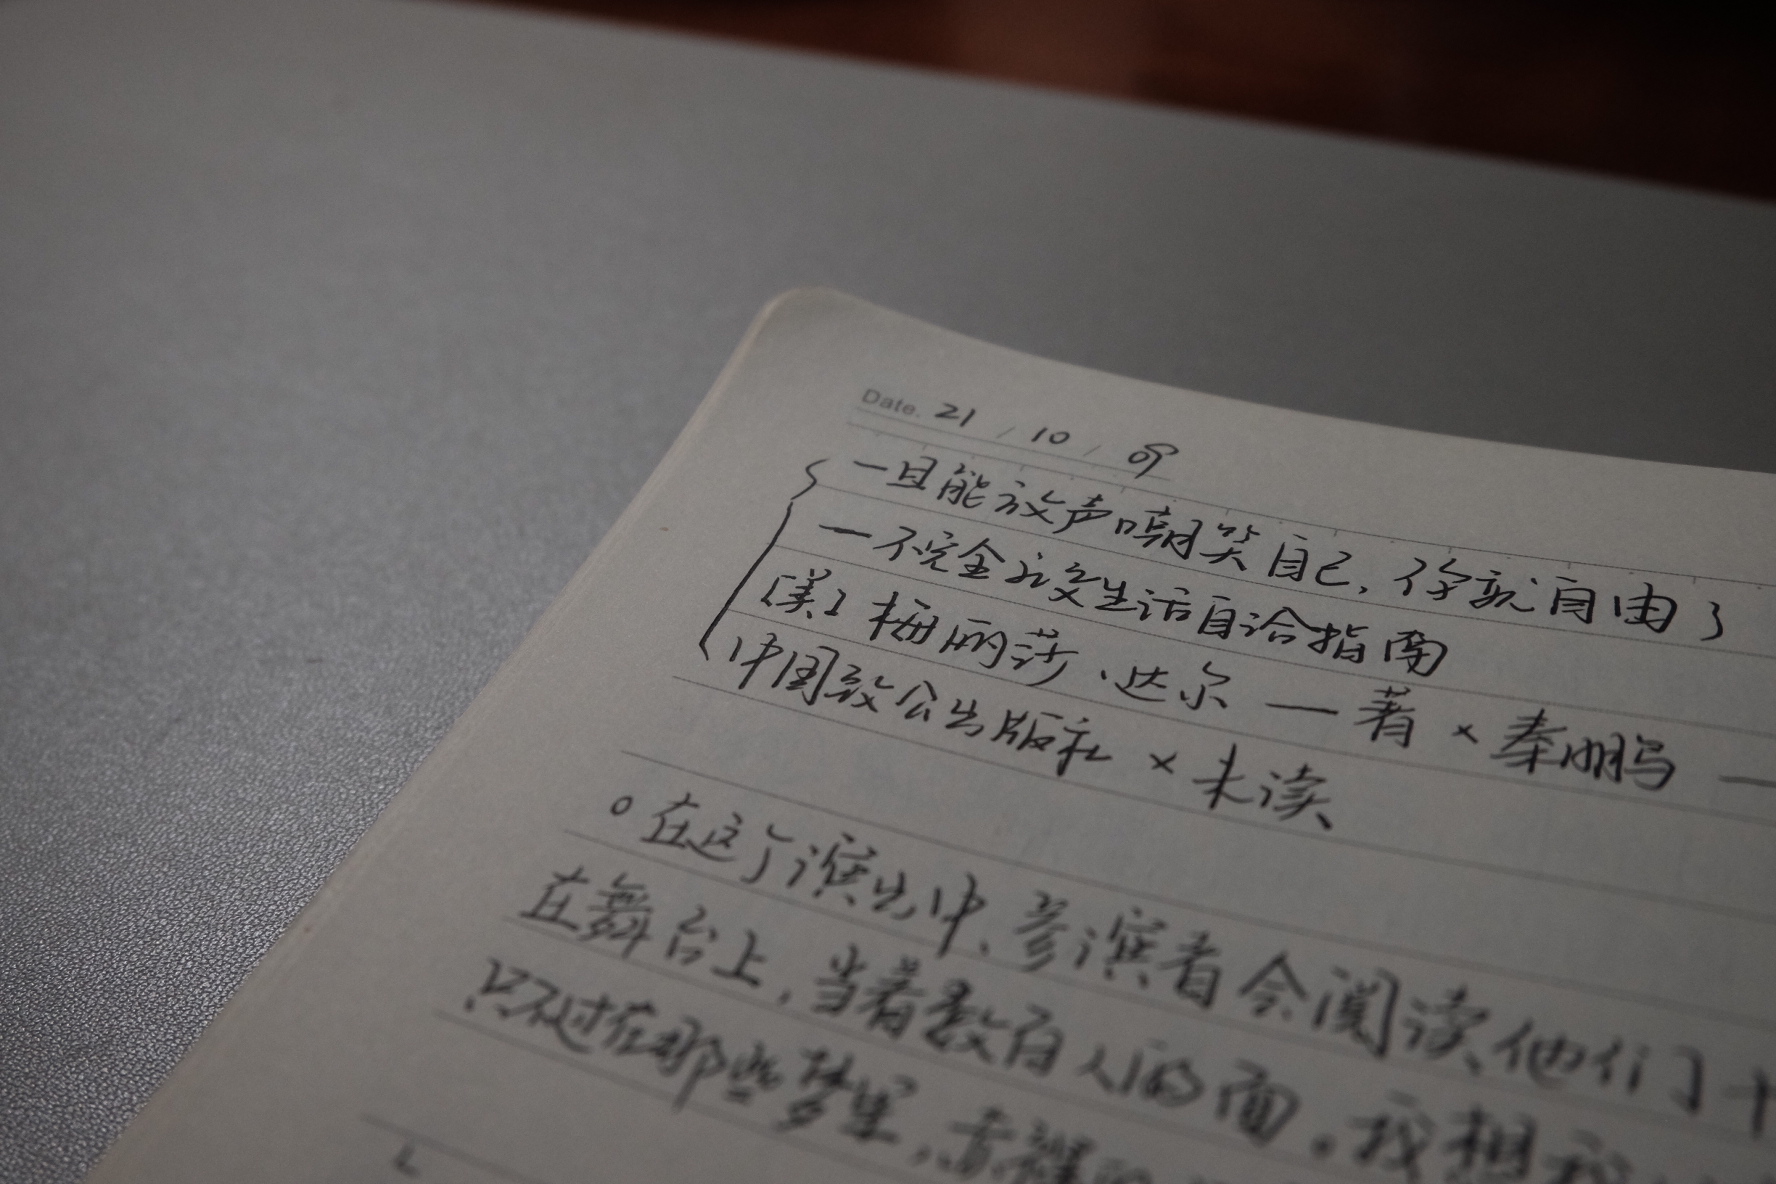 Date. 21 / 10 / 09
一旦能放声嘲笑自己，你就自由了
一不完全社交生活自洽指南
[美] 梅丽莎·达尔 — 著 × 秦鹏 —
中国致公出版社 × 未读
。在这个演出中，参演者会阅读他们十
在舞台上，当着数百人的面。我想我
只不过在那些梦里，